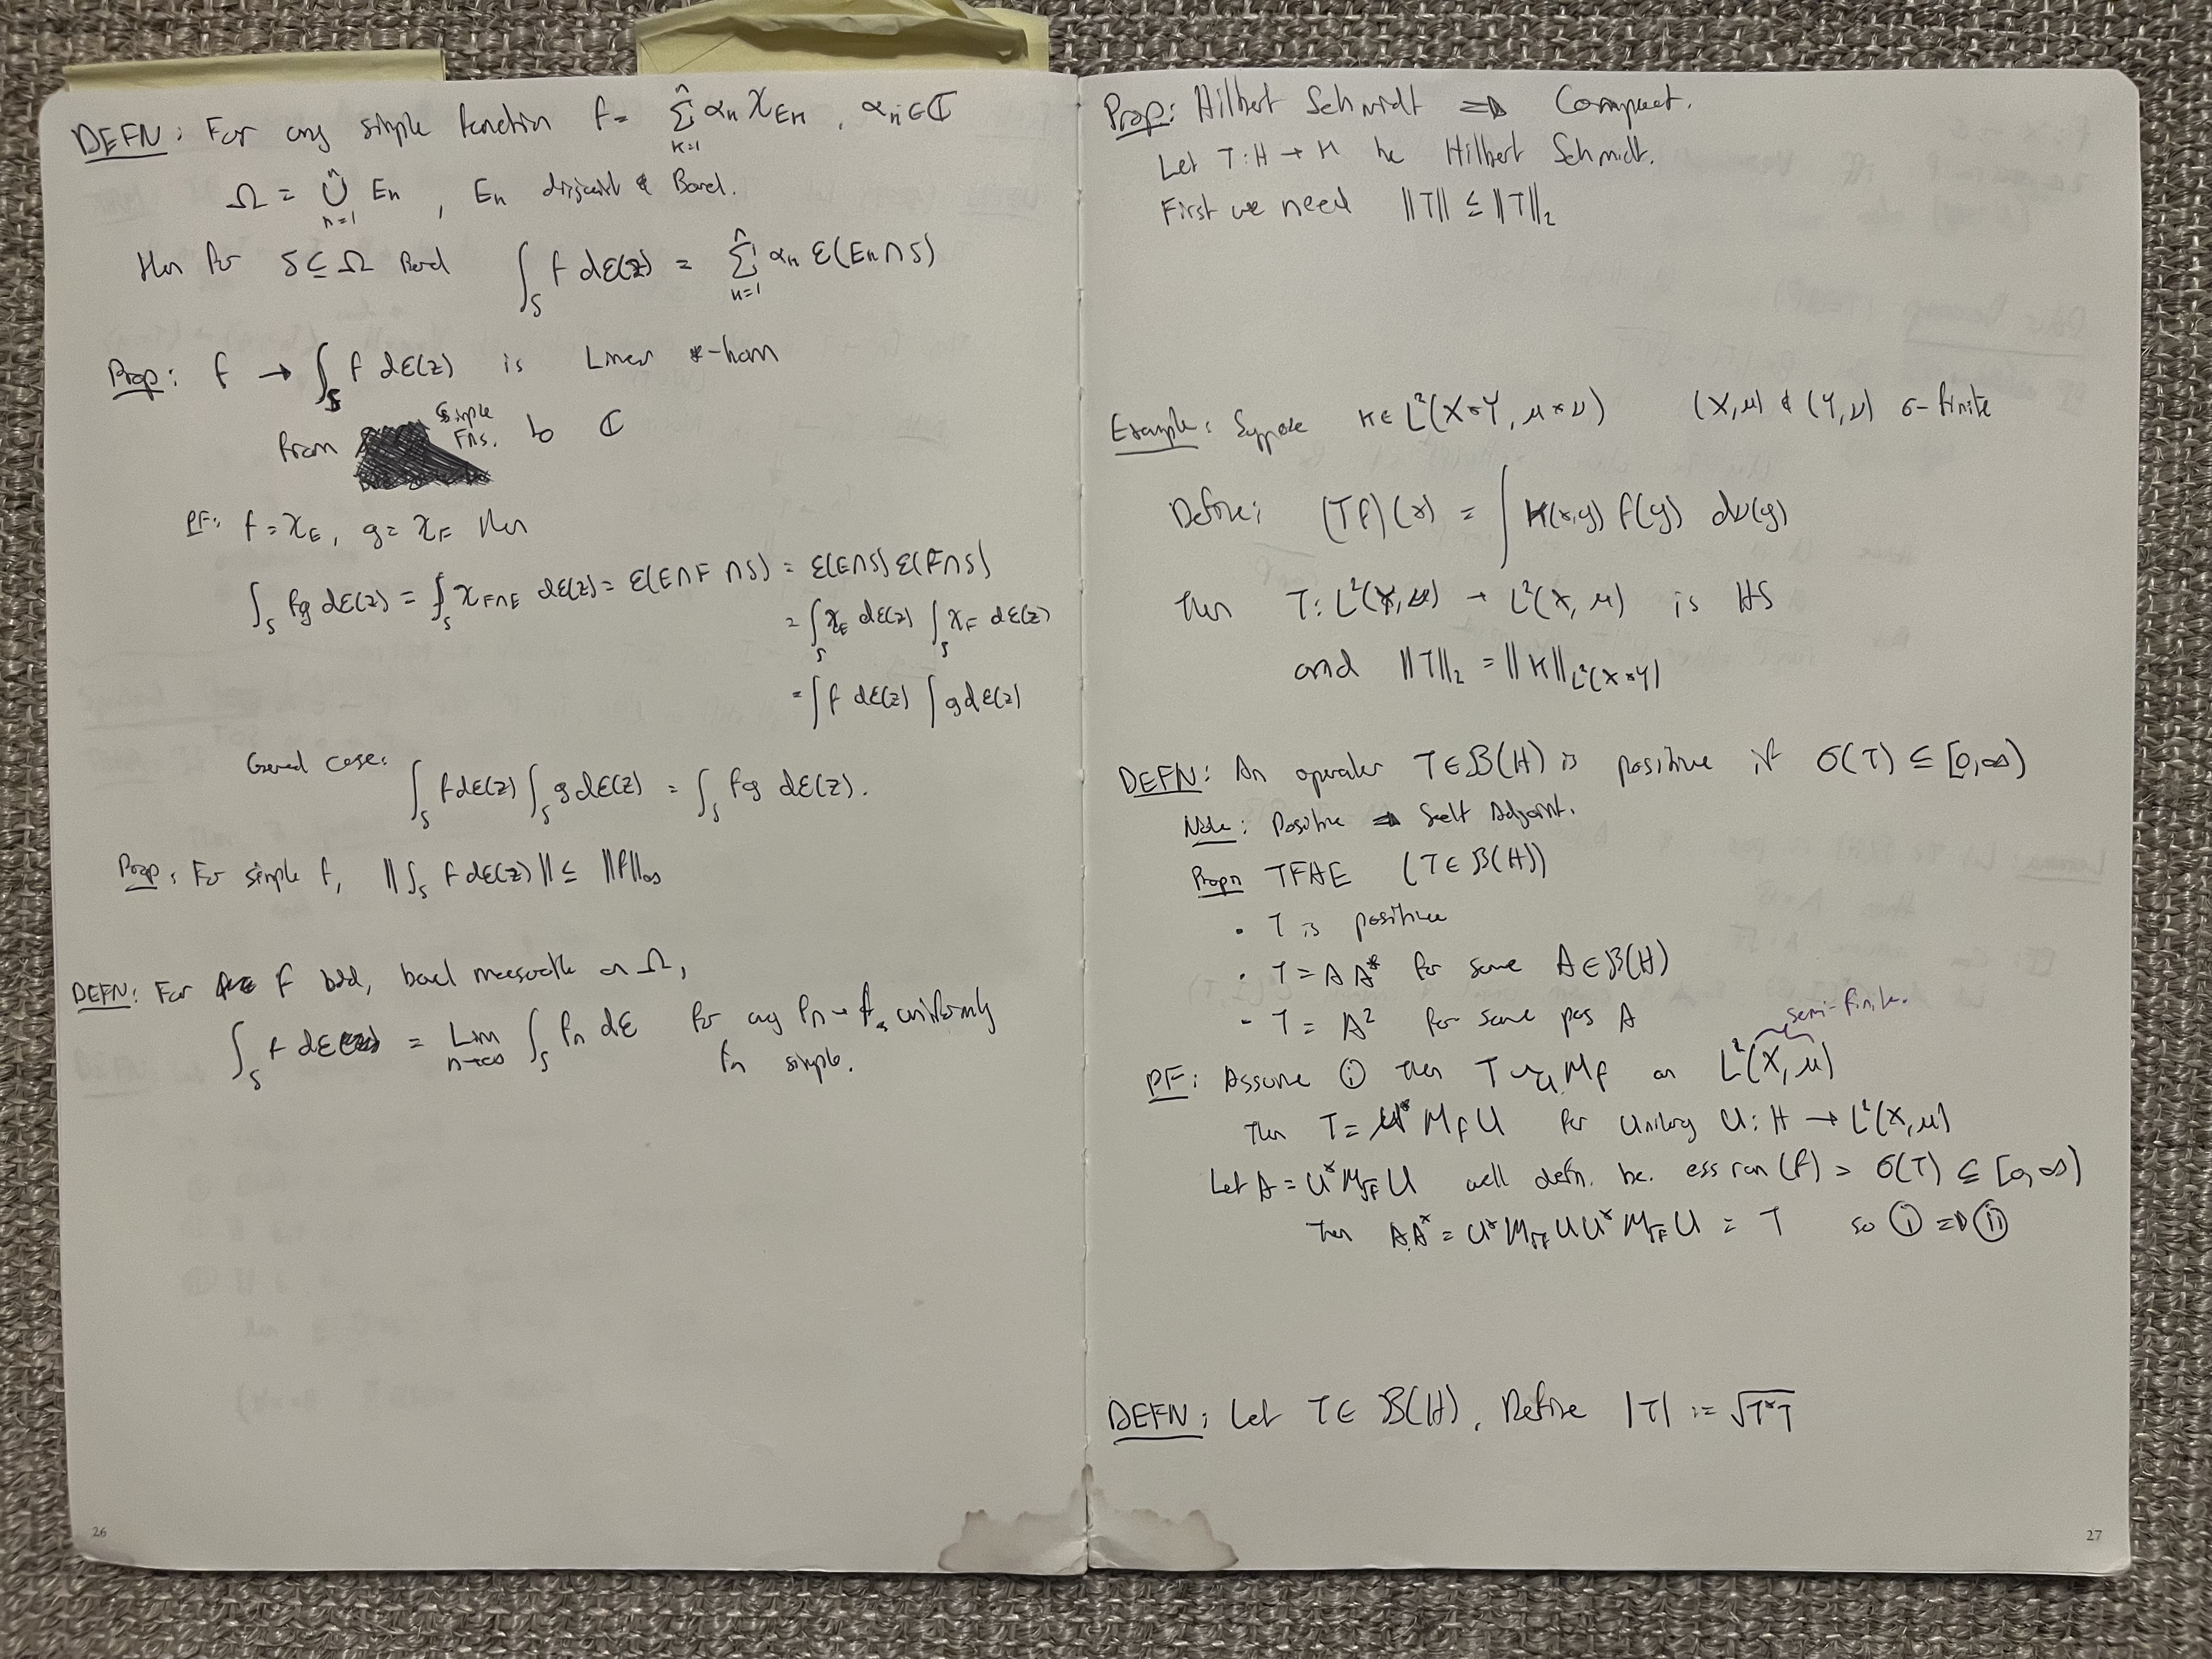 DEFN: For any simple function f = ∑_{n=1}^{n} α_n χ_{E_n}, α_n ∈ ℂ
Ω = ∪_{n=1}^{n} E_n, E_n disjoint & Borel.
then for S ⊆ Ω Borel ∫_S f dε(z) = ∑_{n=1}^{n} α_n ε(E_n ∩ S)
Prop: f → ∫_S f dε(z) is Linear *-hom
from simple Fns. to ℂ
PF: f = χ_E, g = χ_F then
∫_S fg dε(z) = ∫_S χ_{F∩E} dε(z) = ε(E∩F∩S) = ε(E∩S) ε(F∩S)
= ∫_S χ_E dε(z) ∫_S χ_F dε(z)
= ∫ f dε(z) ∫ g dε(z)
General case: ∫_S f dε(z) ∫_S g dε(z) = ∫_S fg dε(z).
Prop: For simple f, ||∫_S f dε(z)|| ≤ ||f||_∞
DEFN: For f bdd, borel measurable on Ω,
∫_S f dε = Lim_{n→∞} ∫_S f_n dε for any f_n → f, uniformly
f_n simple.
26
Prop: Hilbert Schmidt ⇒ Compact.
Let T: H → H be Hilbert Schmidt.
First we need ||T|| ≤ ||T||_2
Example: Suppose K ∈ L²(X×Y, μ×ν) (X,μ) & (Y,ν) σ-finite
Define: (Tf)(x) = ∫ K(x,y) f(y) dν(y)
then T: L²(Y,ν) → L²(X,μ) is HS
and ||T||_2 = ||K||_{L²(X×Y)}
DEFN: An operator T ∈ B(H) is positive if σ(T) ⊆ [0,∞)
Note: Positive ⇒ Self Adjoint.
Propn TFAE (T ∈ B(H))
· T is positive
· T = AA* for some A ∈ B(H)
· T = A² for some pos A
PF: Assume ⓘ then T ~_u M_f on L²(X,μ) semi-finite.
then T = U* M_f U for unitary U: H → L²(X,μ)
Let A = U* M_{√f} U well defn. bc. ess ran (f) = σ(T) ⊆ [0,∞)
then AA* = U* M_{√f} U U* M_{√f} U = T so ⓘ ⇒ ⓘⓘ
DEFN: Let T ∈ B(H). Define |T| := √(T*T)
27